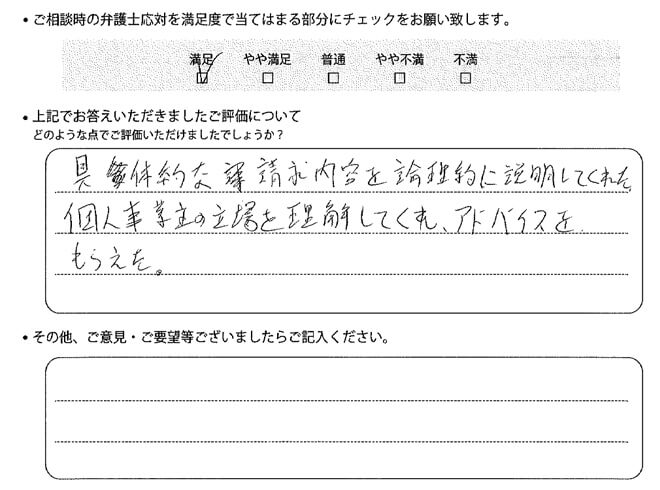 ・ご相談時の弁護士応対を満足度で当てはまる部分にチェックをお願い致します。
満足 やや満足 普通 やや不満 不満
・上記でお答えいただきましたご評価について
どのような点でご評価いただけましたでしょうか？
具体的な請求内容を論理的に説明してくれた。
個人事業主の立場を理解してくれ、アドバイスを
もらえた。
・その他、ご意見・ご要望等ございましたらご記入ください。